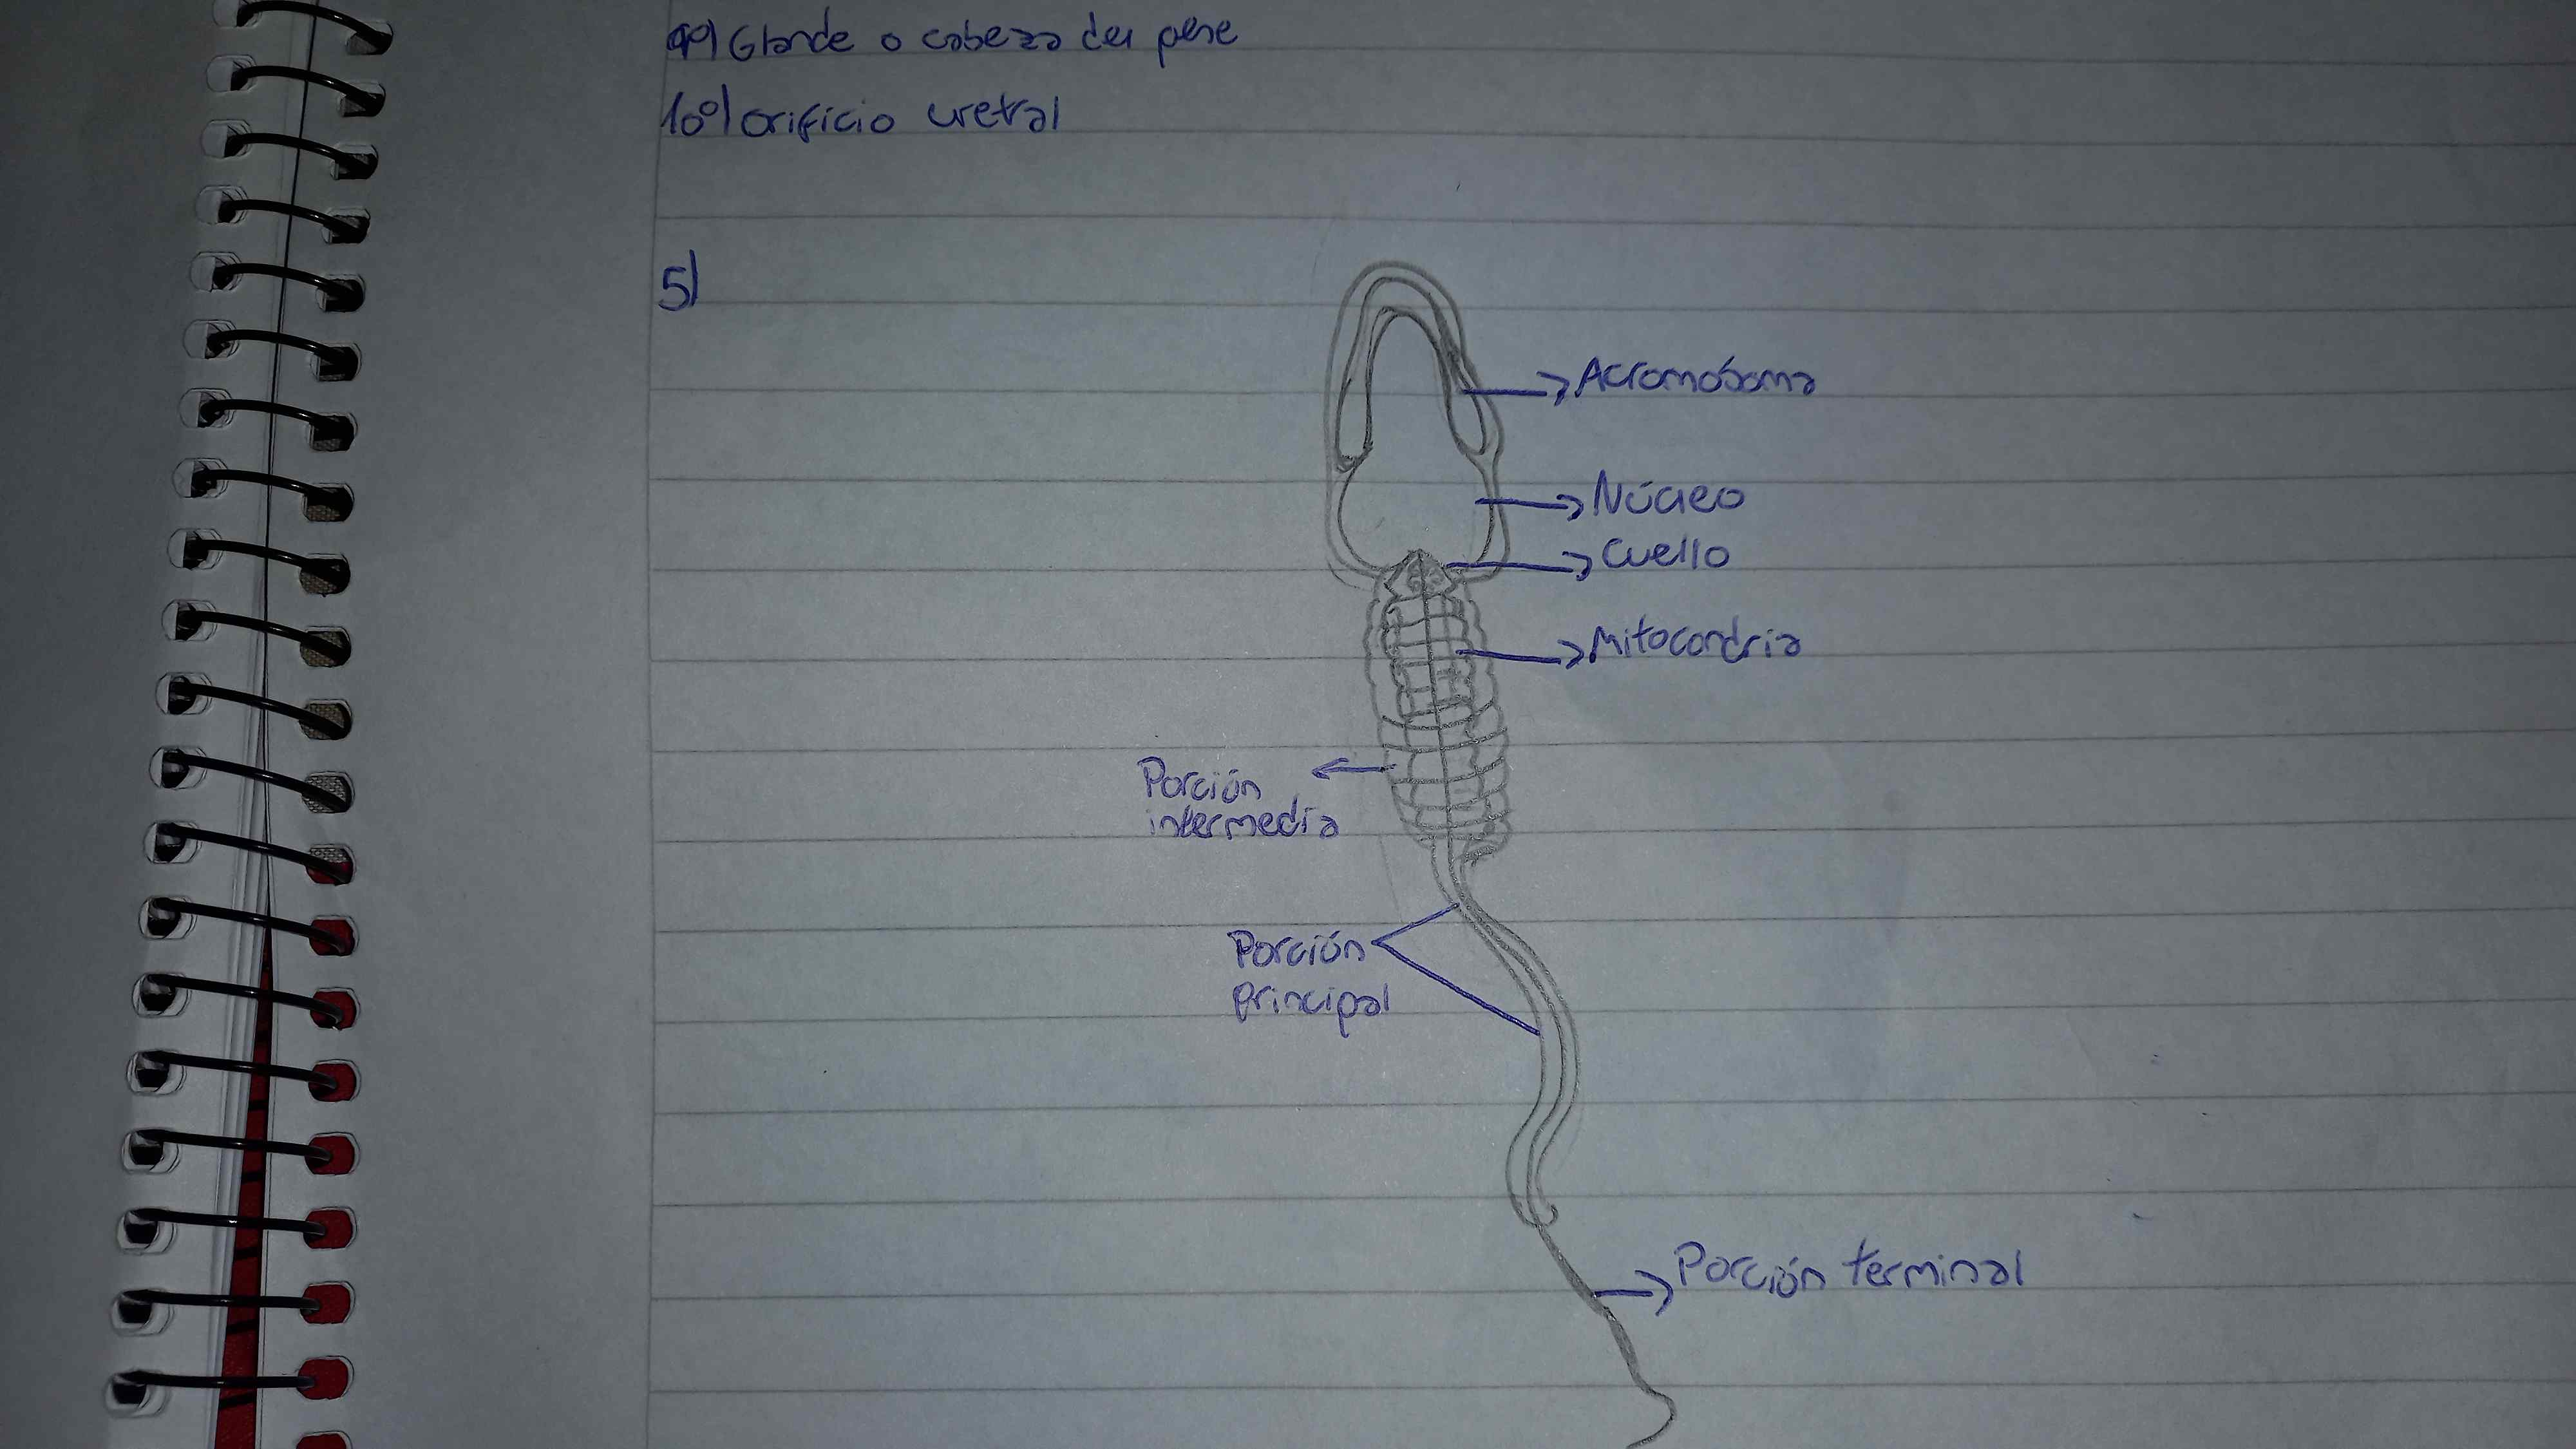 9º) Glande o cabeza del pene
10º) orificio uretral
5)
Acromósoma
Núcleo
Cuello
Mitocondria
Porción
intermedia
Porción
principal
Porción terminal